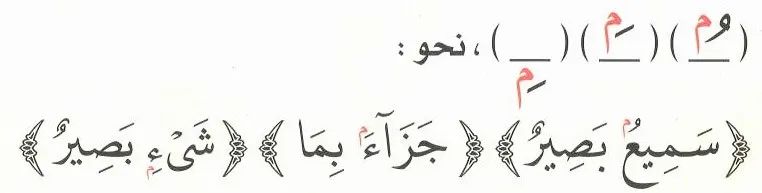 (ـُۢ) (ـَۢ) (ـِۭ) ، نحو :
﴿سَمِيعُۢ بَصِيرٌ﴾ ﴿جَزَآءَۢ بِمَا﴾ ﴿شَىْءِۭ بَصِيرٌ﴾